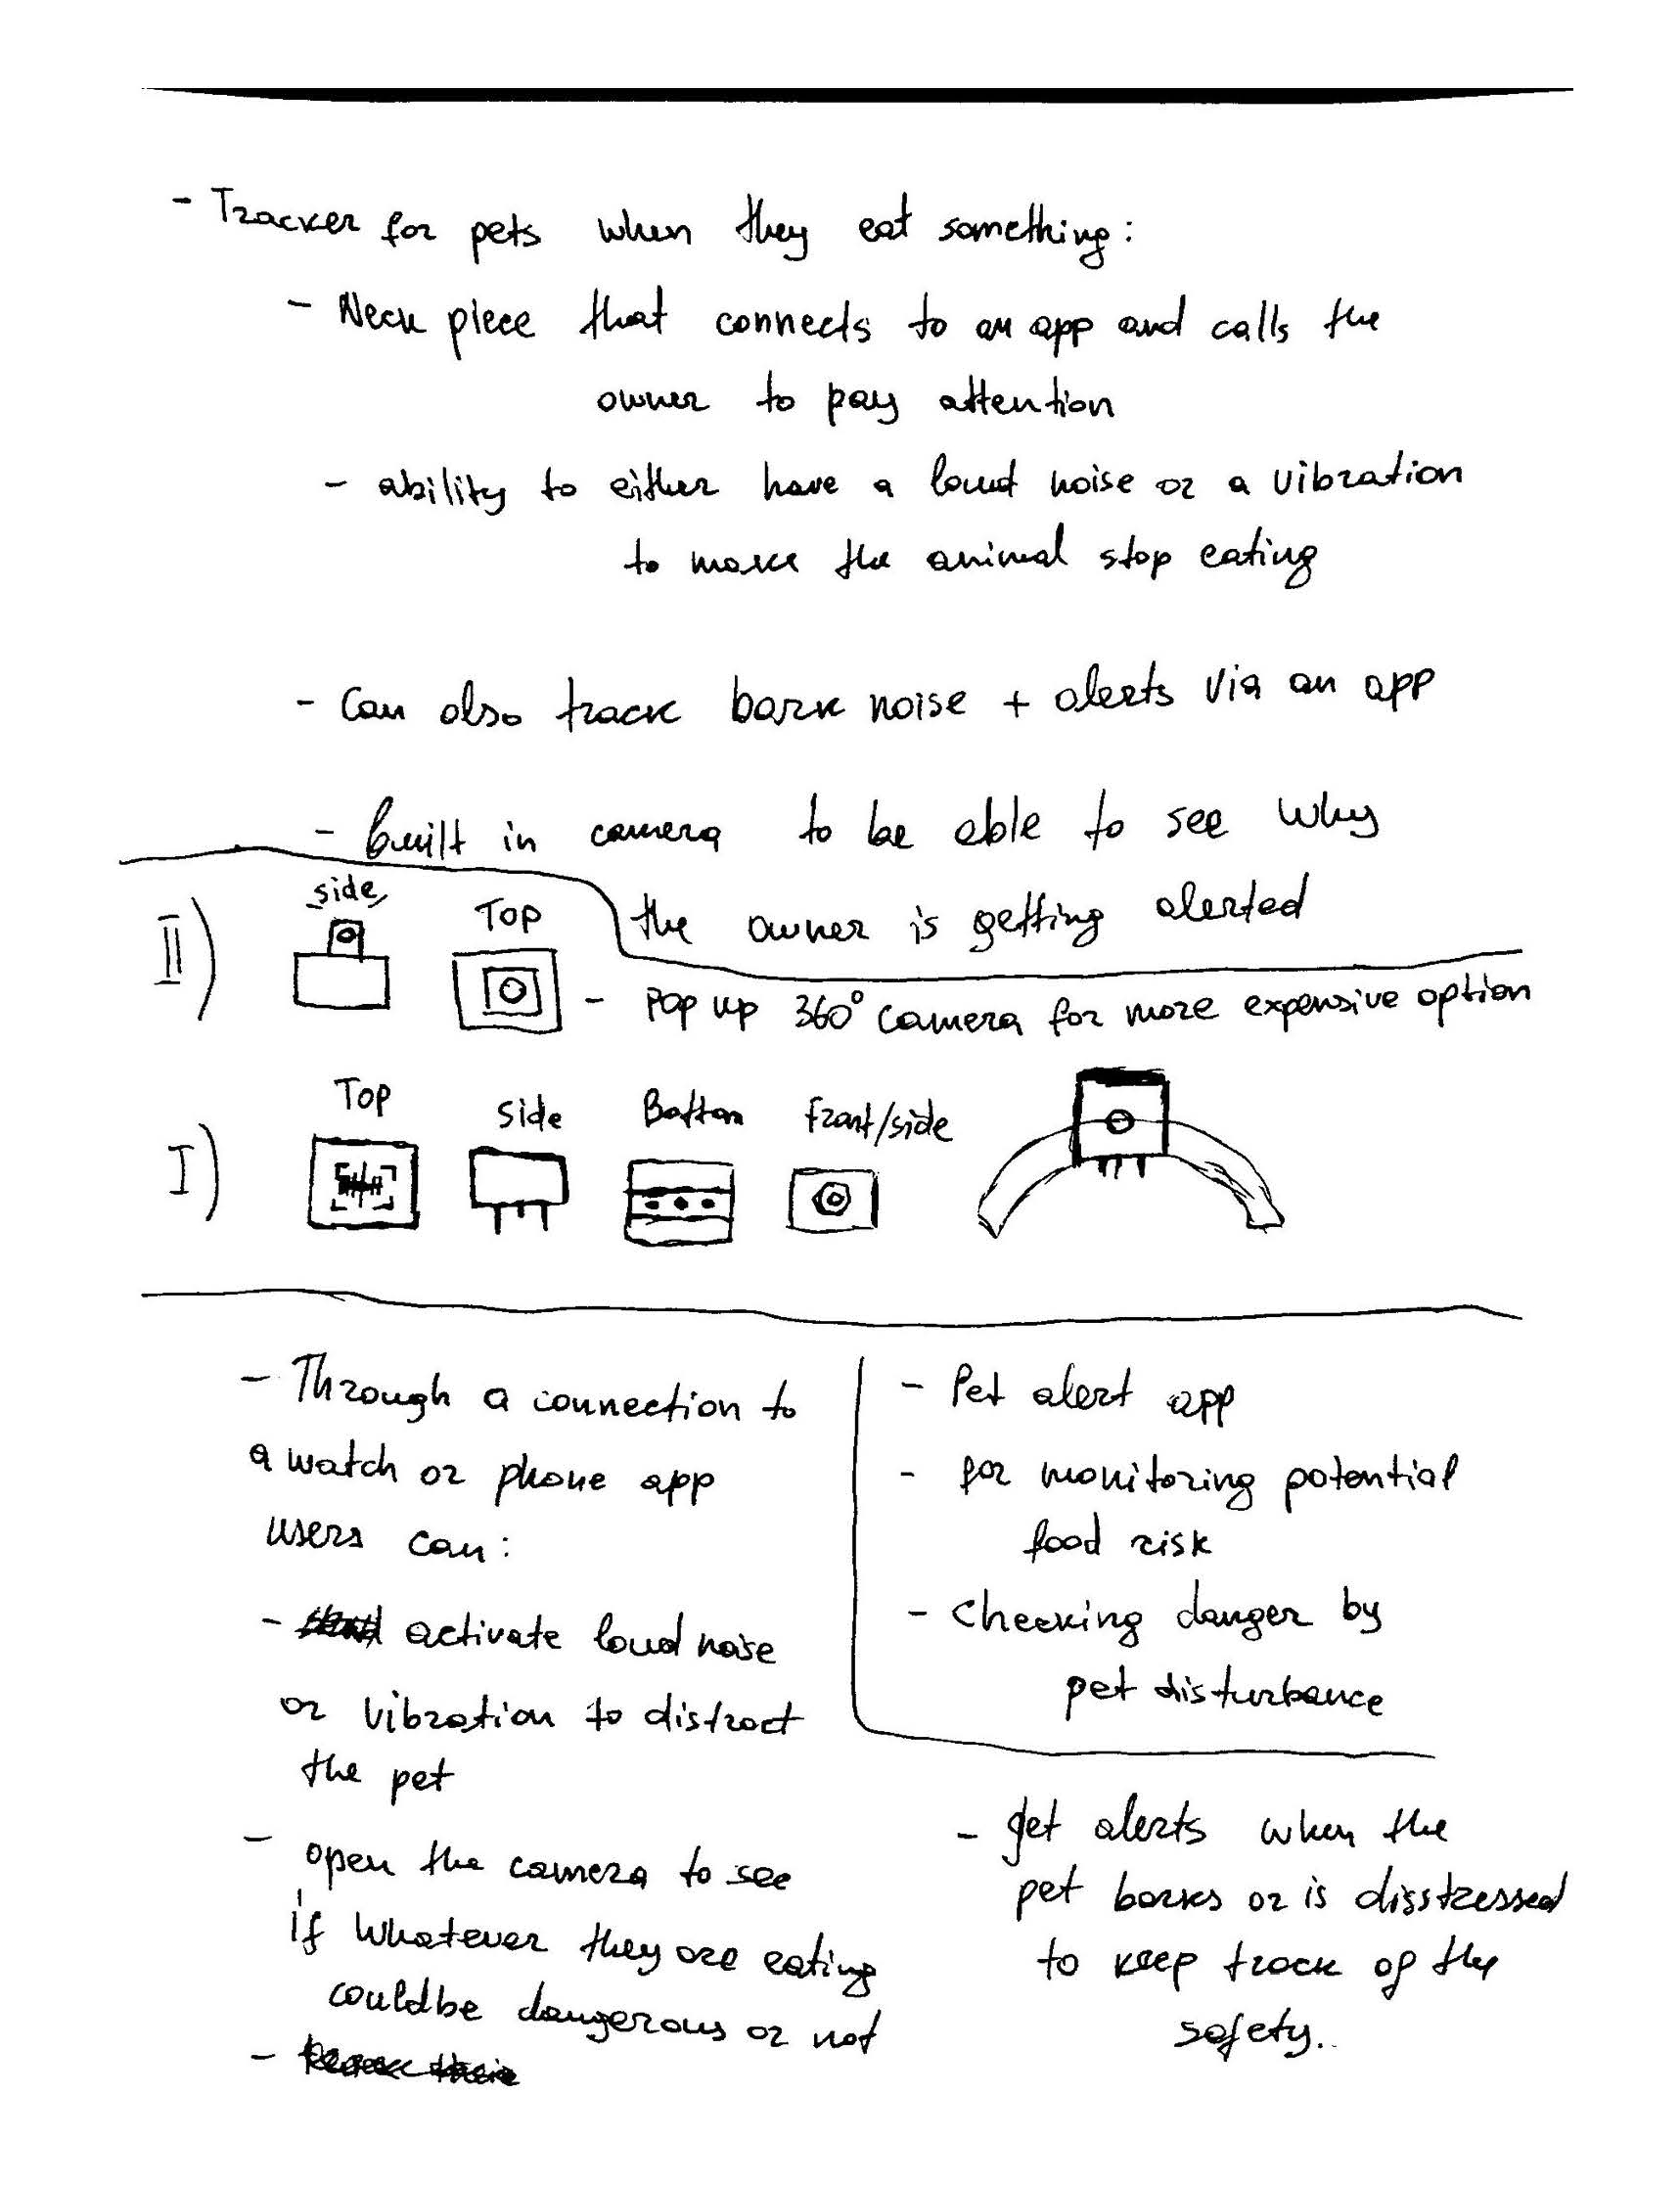 - Tracker for pets when they eat something:
- Neck piece that connects to an app and calls the
owner to pay attention
- ability to either have a loud noise or a vibration
to make the animal stop eating
- Can also track bark noise + alerts via an app
- built in camera to be able to see why
the owner is getting alerted
II)
side
Top
- Pop up 360° camera for more expensive option
I)
Top
Side
Bottom
Front/side
- Through a connection to
a watch or phone app
users can:
- activate loud noise
or vibration to distract
the pet
- open the camera to see
if whatever they are eating
could be dangerous or not
-
- Pet alert app
- for monitoring potential
food risk
- Checking danger by
pet disturbance
- get alerts when the
pet barks or is disstressed
to keep track of the
safety.